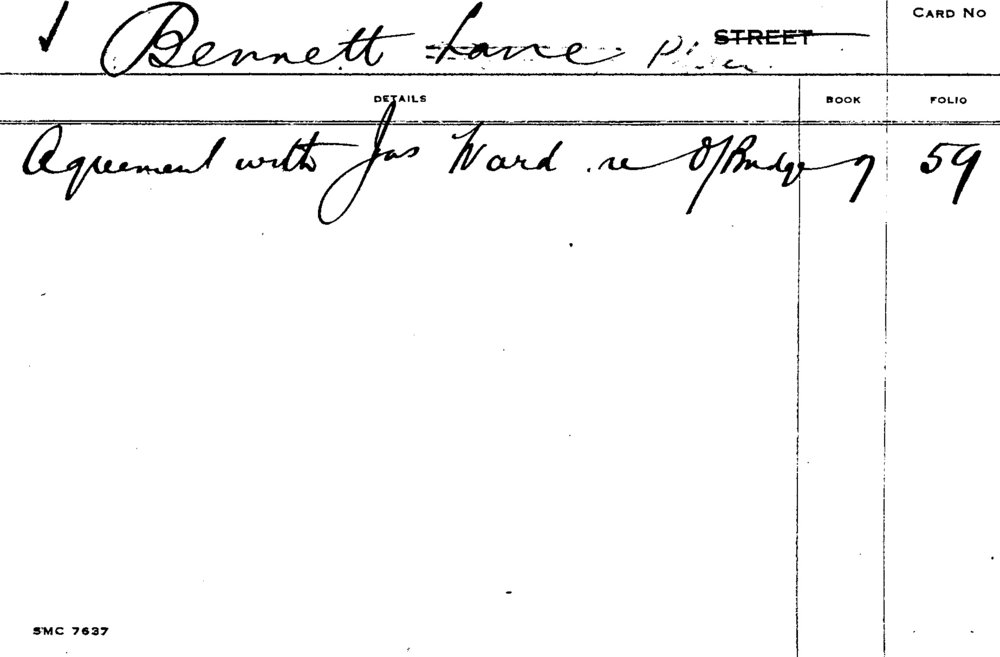 Bennett Lane STREET CARD NO
DETAILS BOOK FOLIO
Agreement with Jas Ward re O/Bridge 7 59
SMC 7637